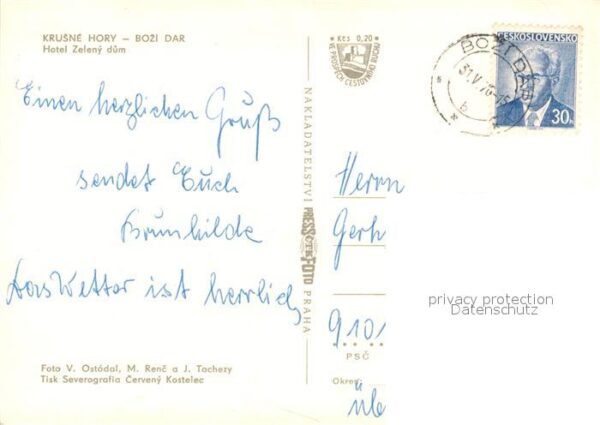 KRUŠNÉ HORY – BOŽÍ DAR
Hotel Zelený dům
Kčs 0,20
VE PROSPĚCH CESTOVNÍHO RUCHU
ČESKOSLOVENSKO
30h
BOŽÍ DAR
31.V.76-15
b
Einen herzlichen Gruß
sendet Euch
Brunhilde
Das Wetter ist herrlich
NAKLADATELSTVÍ PRESSFOTO PRAHA
ČTK
Herrn
Gerh
910
PSČ
Okres:
privacy protection
Datenschutz
Foto V. Ostódal, M. Renč a J. Tachezy
Tisk Severografia Červený Kostelec